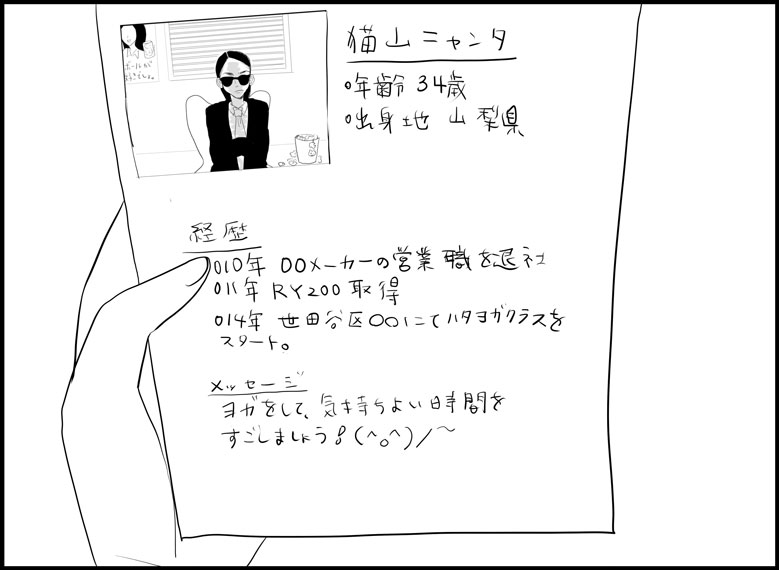 猫山ニャンタ
○年齢 34歳
○出身地 山梨県
経歴
010年 〇〇メーカーの営業職を退社
011年 RY200 取得
014年 世田谷区〇〇にてハタヨガクラスを
スタート。
メッセージ
ヨガをして、気持ちよい時間を
すごしましょう!(^o^)/~